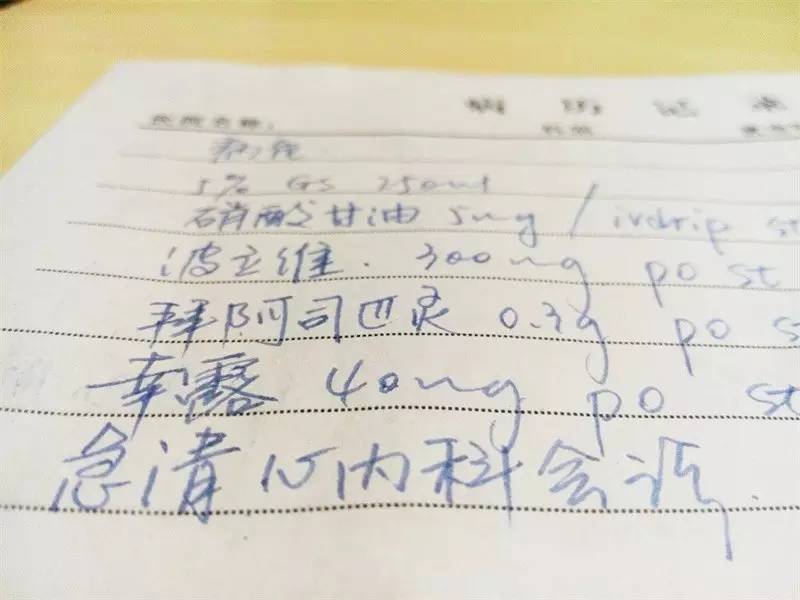 病历记录
5% GS 250ml
硝酸甘油 5mg / ivdrip st
波立维. 300mg po st
拜阿司匹灵 0.3g po st
40mg po st
急请心内科会诊.